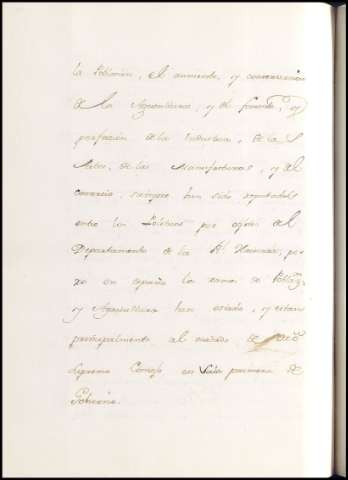 la Poblacion, el aumento, y conservacion
de la Agricultura, y el fomento, y
perfecion de la Industria, de las
Artes, de las Manufacturas, y del
comercio, siempre han sido reputados
entre los Politicos por objetos del
Departamento de la Rl. Hacienda; pe
ro en españa los ramos de Poblaz.n
y Agricultura han estado, y estan
principalmente al cuidado de
Supremo Consejo en Sala primera de
Govierno.